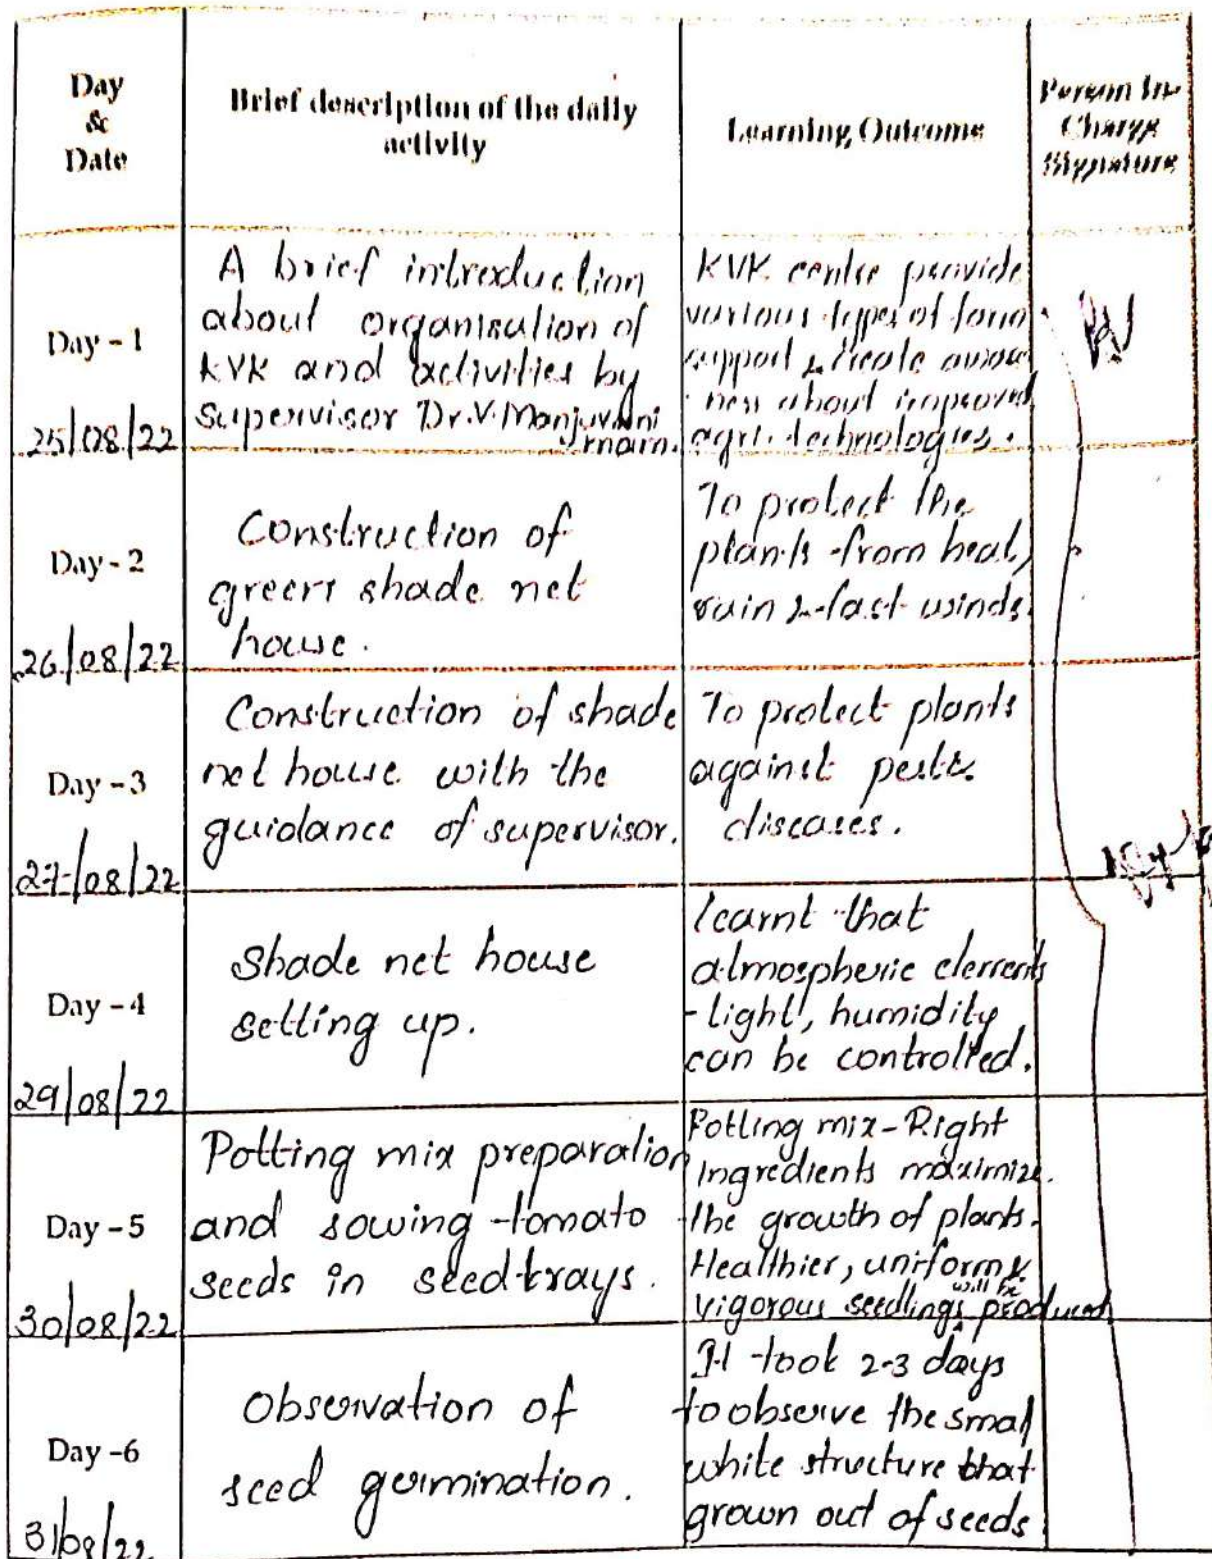 Day
&
Date
Brief description of the daily
activity
Learning Outcome
Person In-
Charge
Signature
Day - 1
25/08/22
A brief introduction
about organisation of
KVK and activities by
supervisor Dr.V.Manjuvani
mam.
KVK centre provide
various types of farm
support & create aware
ness about improved
agri. technologies.
Day - 2
26/08/22
Construction of
green shade net
house.
To protect the
plants from heat,
rain & fast winds.
Day - 3
27/08/22
Construction of shade
net house with the
guidance of supervisor.
To protect plants
against pests
diseases.
Day - 4
29/08/22
Shade net house
setting up.
learnt that
atmospheric elements
- light, humidity
can be controlled.
Day - 5
30/08/22
Potting mix preparation
and sowing tomato
seeds in seed trays.
Potting mix - Right
Ingredients maximize
the growth of plants.
Healthier, uniform &
vigorous seedlings will be produced
Day - 6
31/08/22
Observation of
seed germination.
It took 2-3 days
to observe the small
white structure that
grown out of seeds